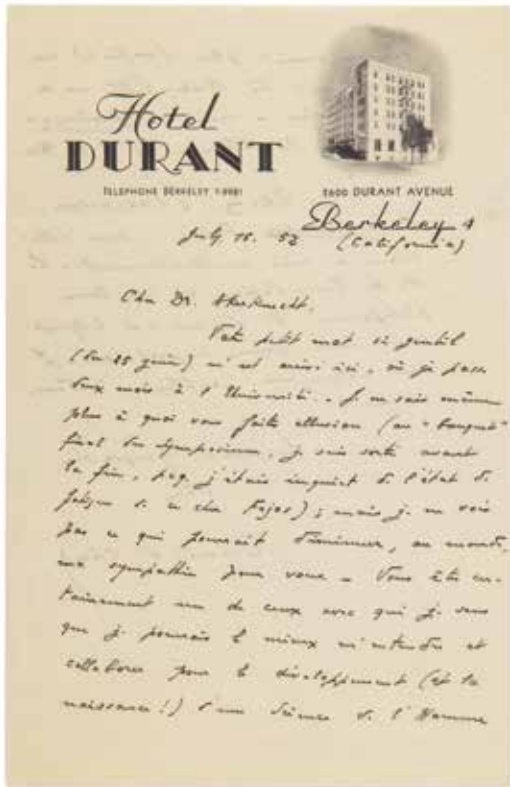 Hotel
DURANT
TELEPHONE BERKELEY
2600 DURANT AVENUE
Berkeley 4
(California)
July 52
Cher Dr.
petit mot si gentil
(du 25 juin) m'est arrivé ici, où je passe
deux mois à l'Université. Je ne sais même
plus à quoi vous faites allusion (au "banquet"
final du symposium, je suis sorti avant
la fin, pcq. j'étais inquiet de l'état de
fatigue de ce cher Rojas); mais je ne vois
pas ce qui pourrait diminuer, au monde,
ma sympathie pour vous – Vous êtes cer-
tainement un de ceux avec qui je sens
que je pourrais le mieux m'entendre et
collaborer pour le développement (et la
naissance!) d'une Science de l'Homme